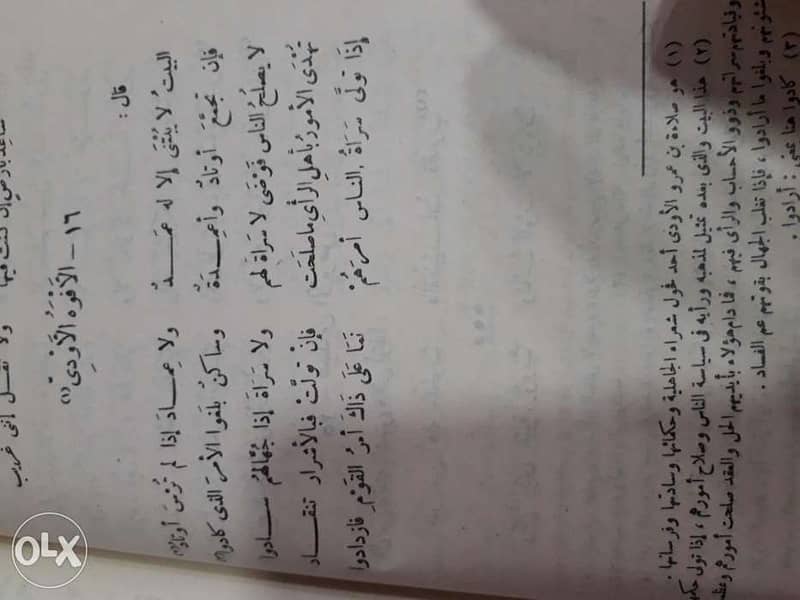 ساعد بأرض إن كنت فيها ولا تقل إنني غريب
١٦ – الأَفْوَهُ الْأَوْدِيّ(١)
قال :
البيتُ لا يُبْتَنَى إلا له عَمَدُ ولا عِمادَ إذا لم تُرْسَ أوتادُ(٢)
فإن تجمَّعَ أوتادٌ وأعمِدَةٌ وساكنٌ بلغوا الأمرَ الذى كادوا(٣)
لا يصلحُ الناس فَوْضَى لا سَرَاةَ لهم ولا سَرَاةَ إذا جُهَّالُهُمْ سادوا
تُهْدَى الأمورُ بأهلِ الرأي ما صلحَت فإنْ تولَّتْ فبالأشرار تنقاد
إذا تولَّى سَرَاةُ الناس أمرَهُمْ نَمَا عَلَى ذَاكَ أمرُ القومِ فازدادوا
(١) هو صلاءة بن عمرو الأودى أحد فحول شعراء الجاهلية وحكمائها وسادتها وفرسانها .
(٢) هذا البيت والذى بعده تمثيل لمذهبه ورأيه فى سياسة الناس وصلاح أمورهم ، إذا تولى
وقيادتهم سراتهم وذوو الأحساب والرأى فيهم ، فما دام هؤلاء بأيديهم الحل والعقد صلحت أمورهم
شئونهم وبلغوا ما أرادوا ، فإذا تغلب الجهال بقوتهم عم الفساد .
(٣) كادوا هنا بمعنى : أرادوا .
OLX